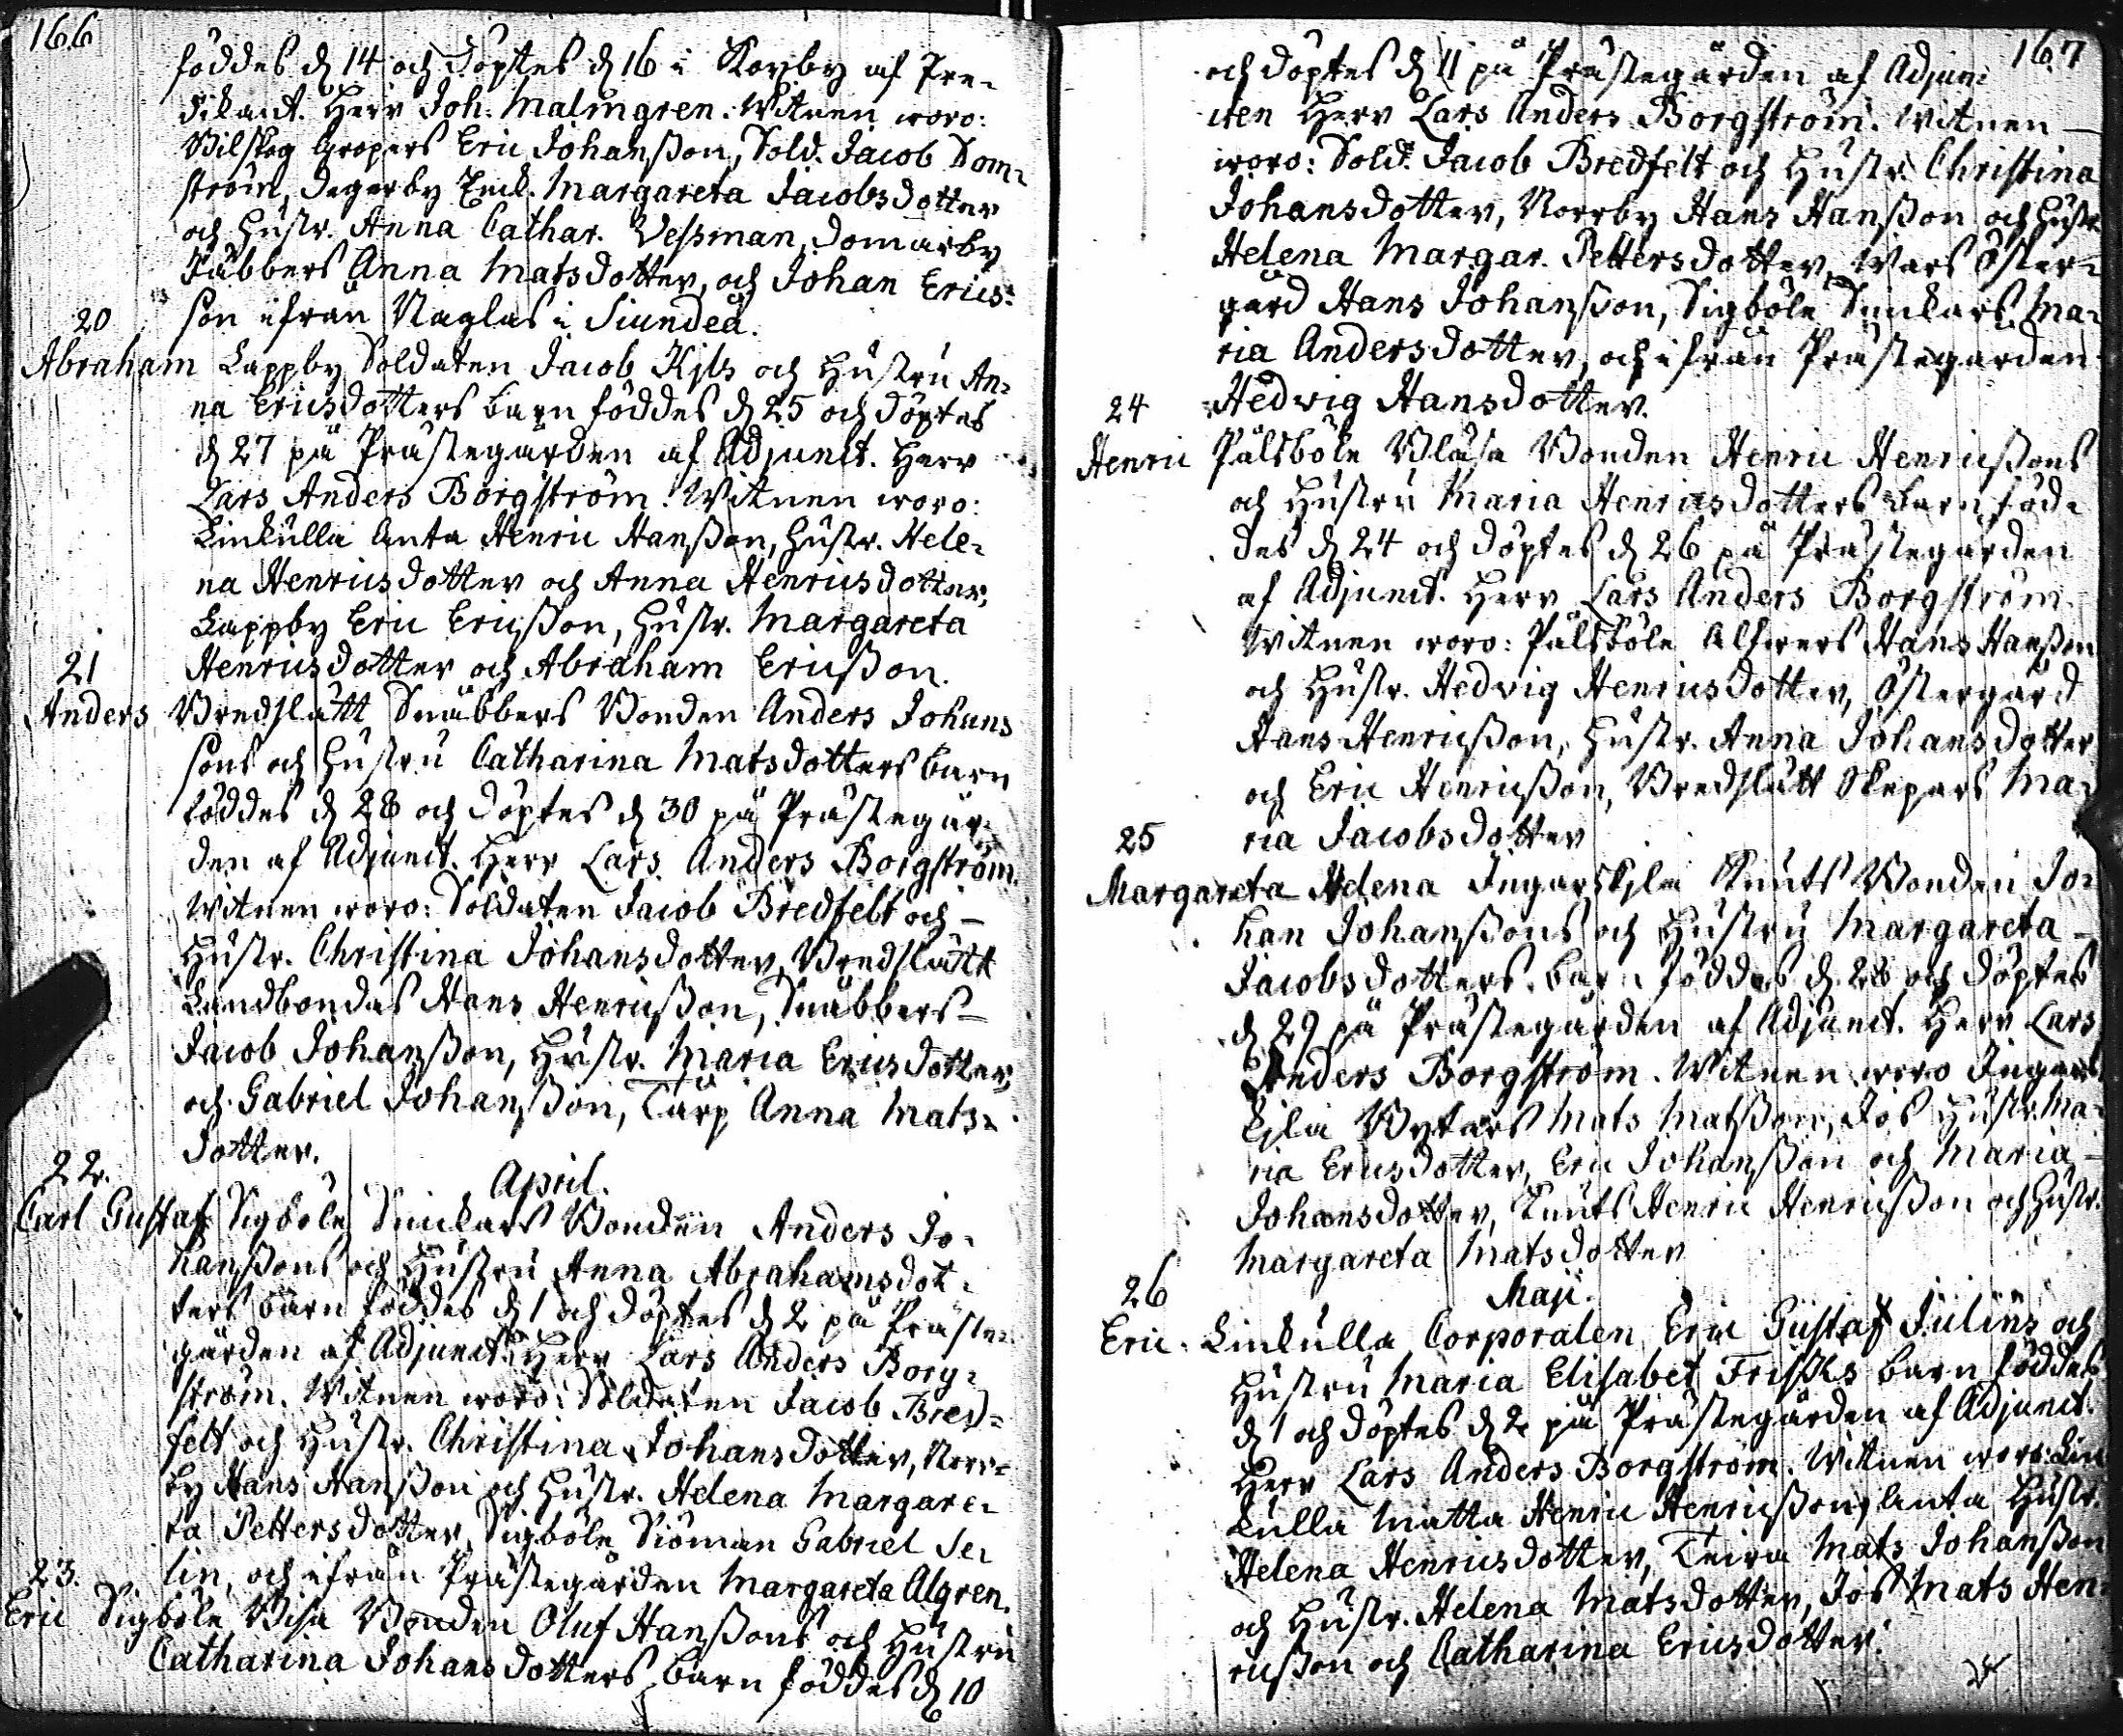 166
föddes d 14 och döptes d 16 i Korby af Pre-
dikant. Herr Joh. Malmgren. Witnen woro:
Bilskog Gropers Eric Johanßon, Sold. Jacob Dom-
ström, Degerby Enck. Margareta Jacobsdotter
och Hustr. Anna Cathar. Weßman, Domarby
Jäbbers Anna Matsdotter, och Johan Erics-
son ifrån Naglas i Siundeå.
20
Abraham Lappby Soldaten Jacob Kjls och Hustru An-
na Ericsdotters barn föddes d 25 och döptes
d 27 på Prästegården af Adjunct. Herr
Lars Anders Borgström. Witnen woro:
Linkulla Anta Henric Hanßon, Hustr. Hele-
na Henricsdotter och Anna Henricsdotter,
Lappby Eric Ericßon, Hustr. Margareta
Henricsdotter och Abraham Ericßon.
21
Anders Bredslätt Snäbbers Bonden Anders Johans
sons och Hustru Catharina Matsdotters barn
föddes d 28 och döptes d 30 på Prästegår-
den af Adjunct. Herr Lars Anders Borgström.
Witnen woro: Soldaten Jacob Bredfelt och
Hustr. Christina Johansdotter, Bredslätt
Landbondas Hans Henricßon, Snäbbers
Jacob Johanßon, Hustr. Maria Ericsdotter,
och Gabriel Johanßon, Tärp Anna Mats-
dotter.
22. April.
Carl Gustaf Sigböle Smickars Bonden Anders Jo-
hanßons och Hustru Anna Abrahamsdot-
ters barn föddes d 1 och döptes d 2 på Präste-
gården af Adjunct. Herr Lars Anders Borg-
ström. Witnen woro: Soldaten Jacob Bred-
felt och Hustr. Christina Johansdotter, Norr-
by Hans Hanßon och Hustr. Helena Margare-
ta Pettersdotter, Sigböle Siöman Gabriel Se-
lin, och ifrån Prästegården Margareta Algren.
23.
Eric Sigböle Wisa Bonden Oluf Hanßons och Hustru
Catharina Johansdotters barn föddes d 10
167
och döptes d 11 på Prästegården af Adjunc-
ten Herr Lars Anders Borgström. Witnen
woro: Sold. Jacob Bredfelt och Hustr. Christina
Johansdotter, Norrby Hans Hanßon och Hustr.
Helena Margar. Pettersdotter, Wars Öster-
gård Hans Johanßon, Sigböle Smickars Ma-
ria Andersdotter, och ifrån Prästegården
Hedvig Hansdotter.
24
Henric Pålsböle Blåsa Bonden Henric Henricßons
och Hustru Maria Henricsdotters barn föd-
des d 24 och döptes d 26 på Prästegården
af Adjunct. Herr Lars Anders Borgström.
Witnen woro: Pålsböle Alfwers Hans Hanßon
och Hustr. Hedvig Henricsdotter, Östergård
Hans Henricßon, Hustr. Anna Johansdotter
och Eric Henricßon, Bredslätt Skepars Ma-
ria Jacobsdotter
25
Margareta Helena Ingarskjla Knuts Bonden Jo-
han Johanßons och Hustru Margareta
Jacobsdotters barn föddes d. 28 och döptes
d 29 på Prästegården af Adjunct. Herr Lars
Anders Borgström. Witnen woro Ingars
kjla Bytars Mats Matßon, Jös Hustr. Ma-
ria Ericsdotter, Eric Johanßon och Maria
Johansdotter, Knuts Henric Henricßon och Hustr.
Margareta Matsdotter
26 Maji.
Eric. Linkulla Corporalen Eric Gustaf Julins och
Hustru Maria Elisabet Frisks barn föddes
d 1 och döptes d 2 på Prästegården af Adjunct.
Herr Lars Anders Borgström. Witnen woro: Lin
kulla Matta Henric Henricßon, Anta Hustr.
Helena Henricsdotter, Teira Mats Johanßon
och Hustr. Helena Matsdotter, Jös Mats Hen-
ricßon och Catharina Ericsdotter.